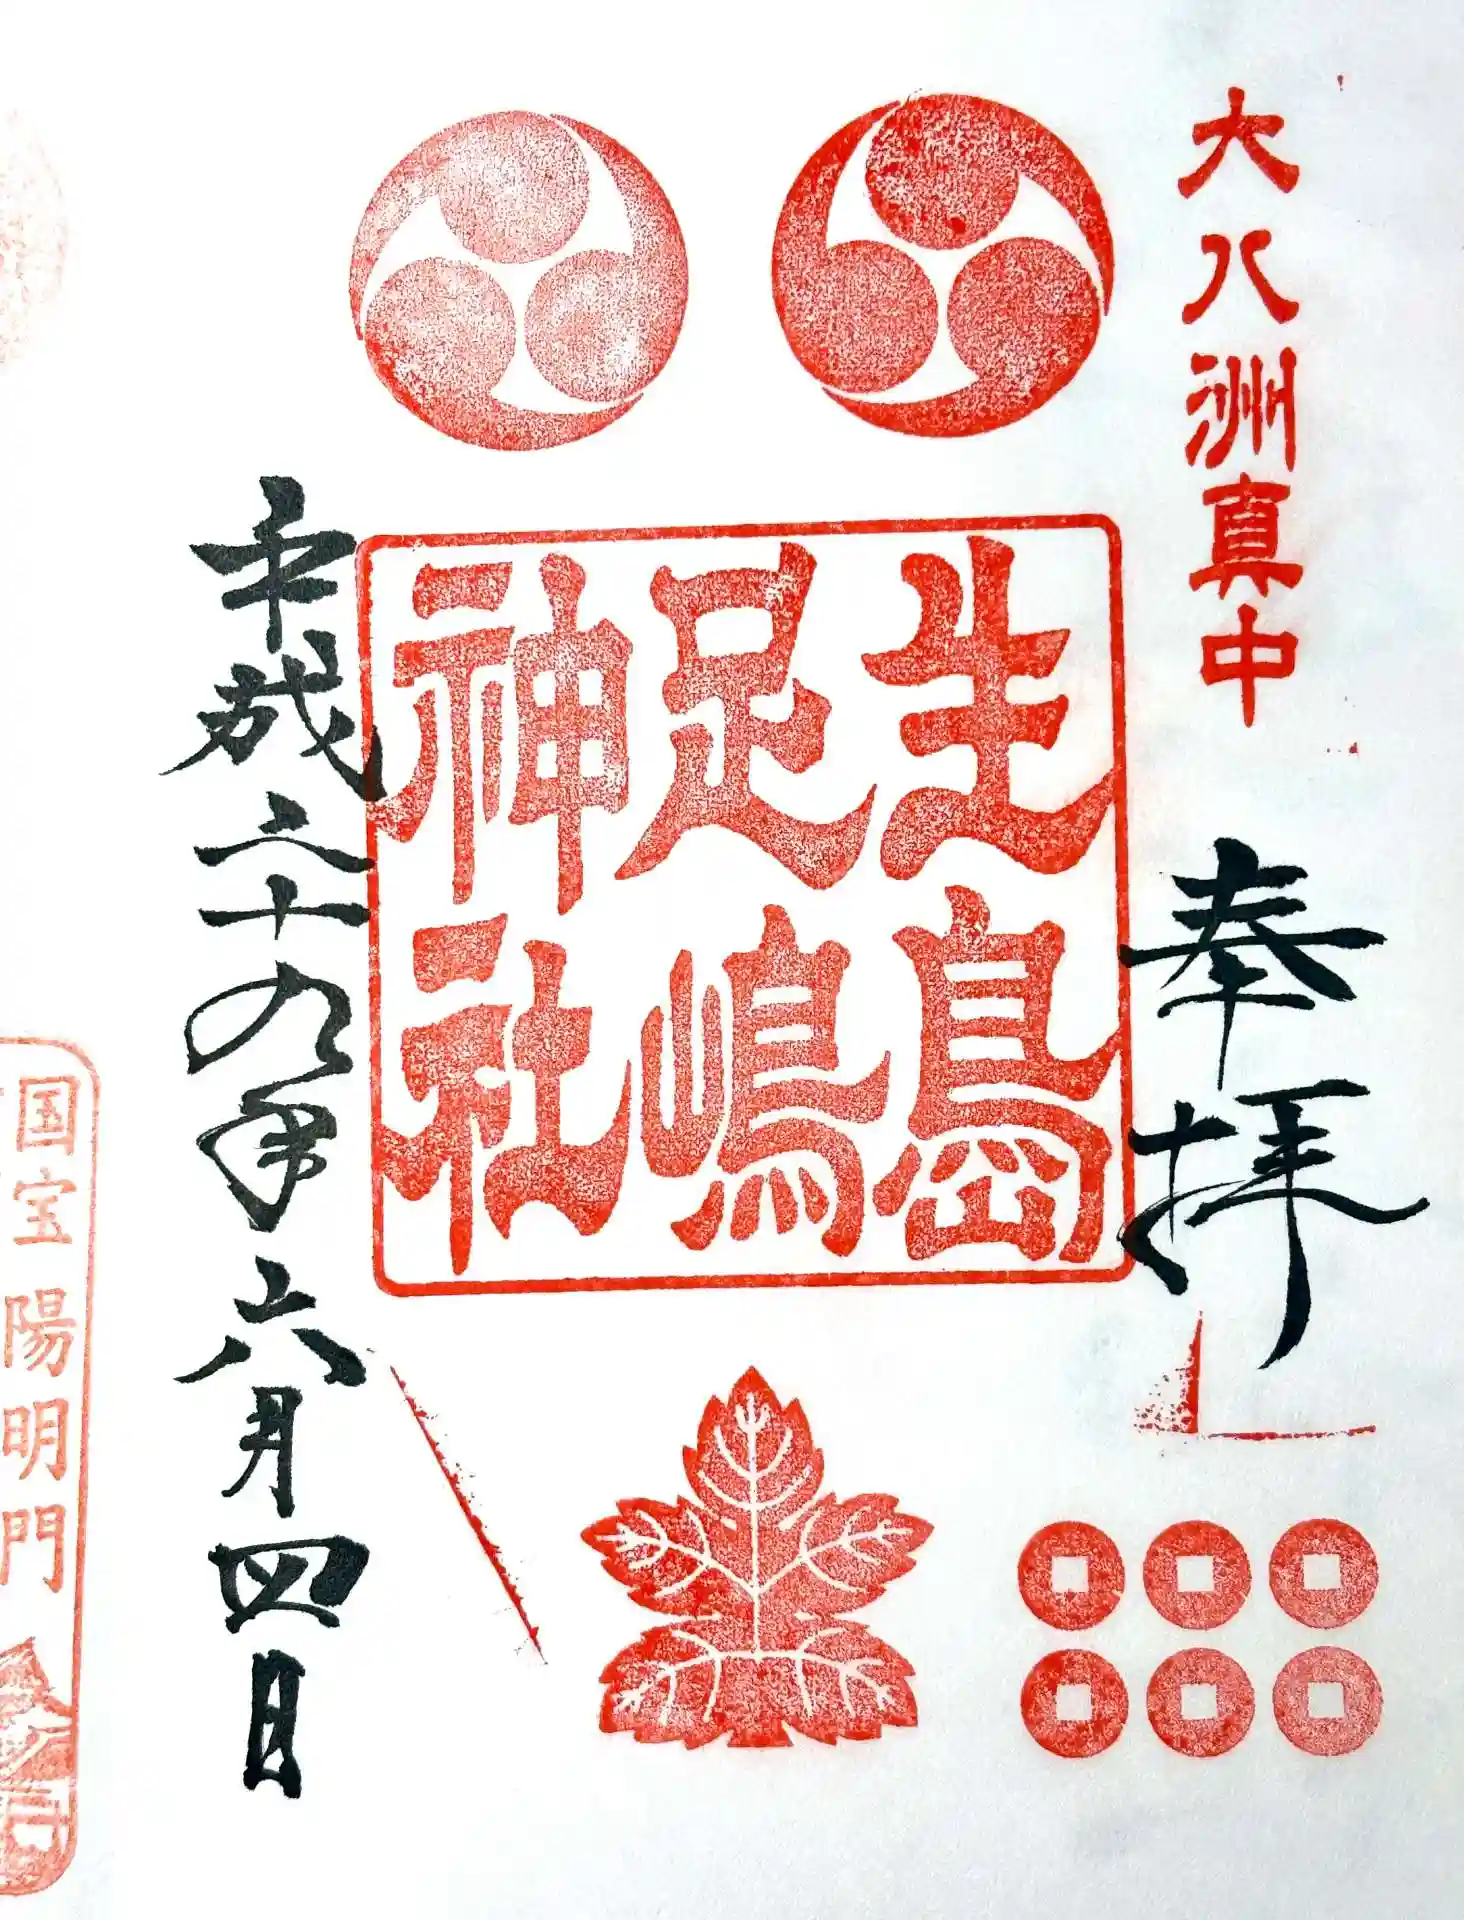 大八洲真中
奉拝
生島
足嶋
神社
平成二十九年六月四日
国宝陽明門